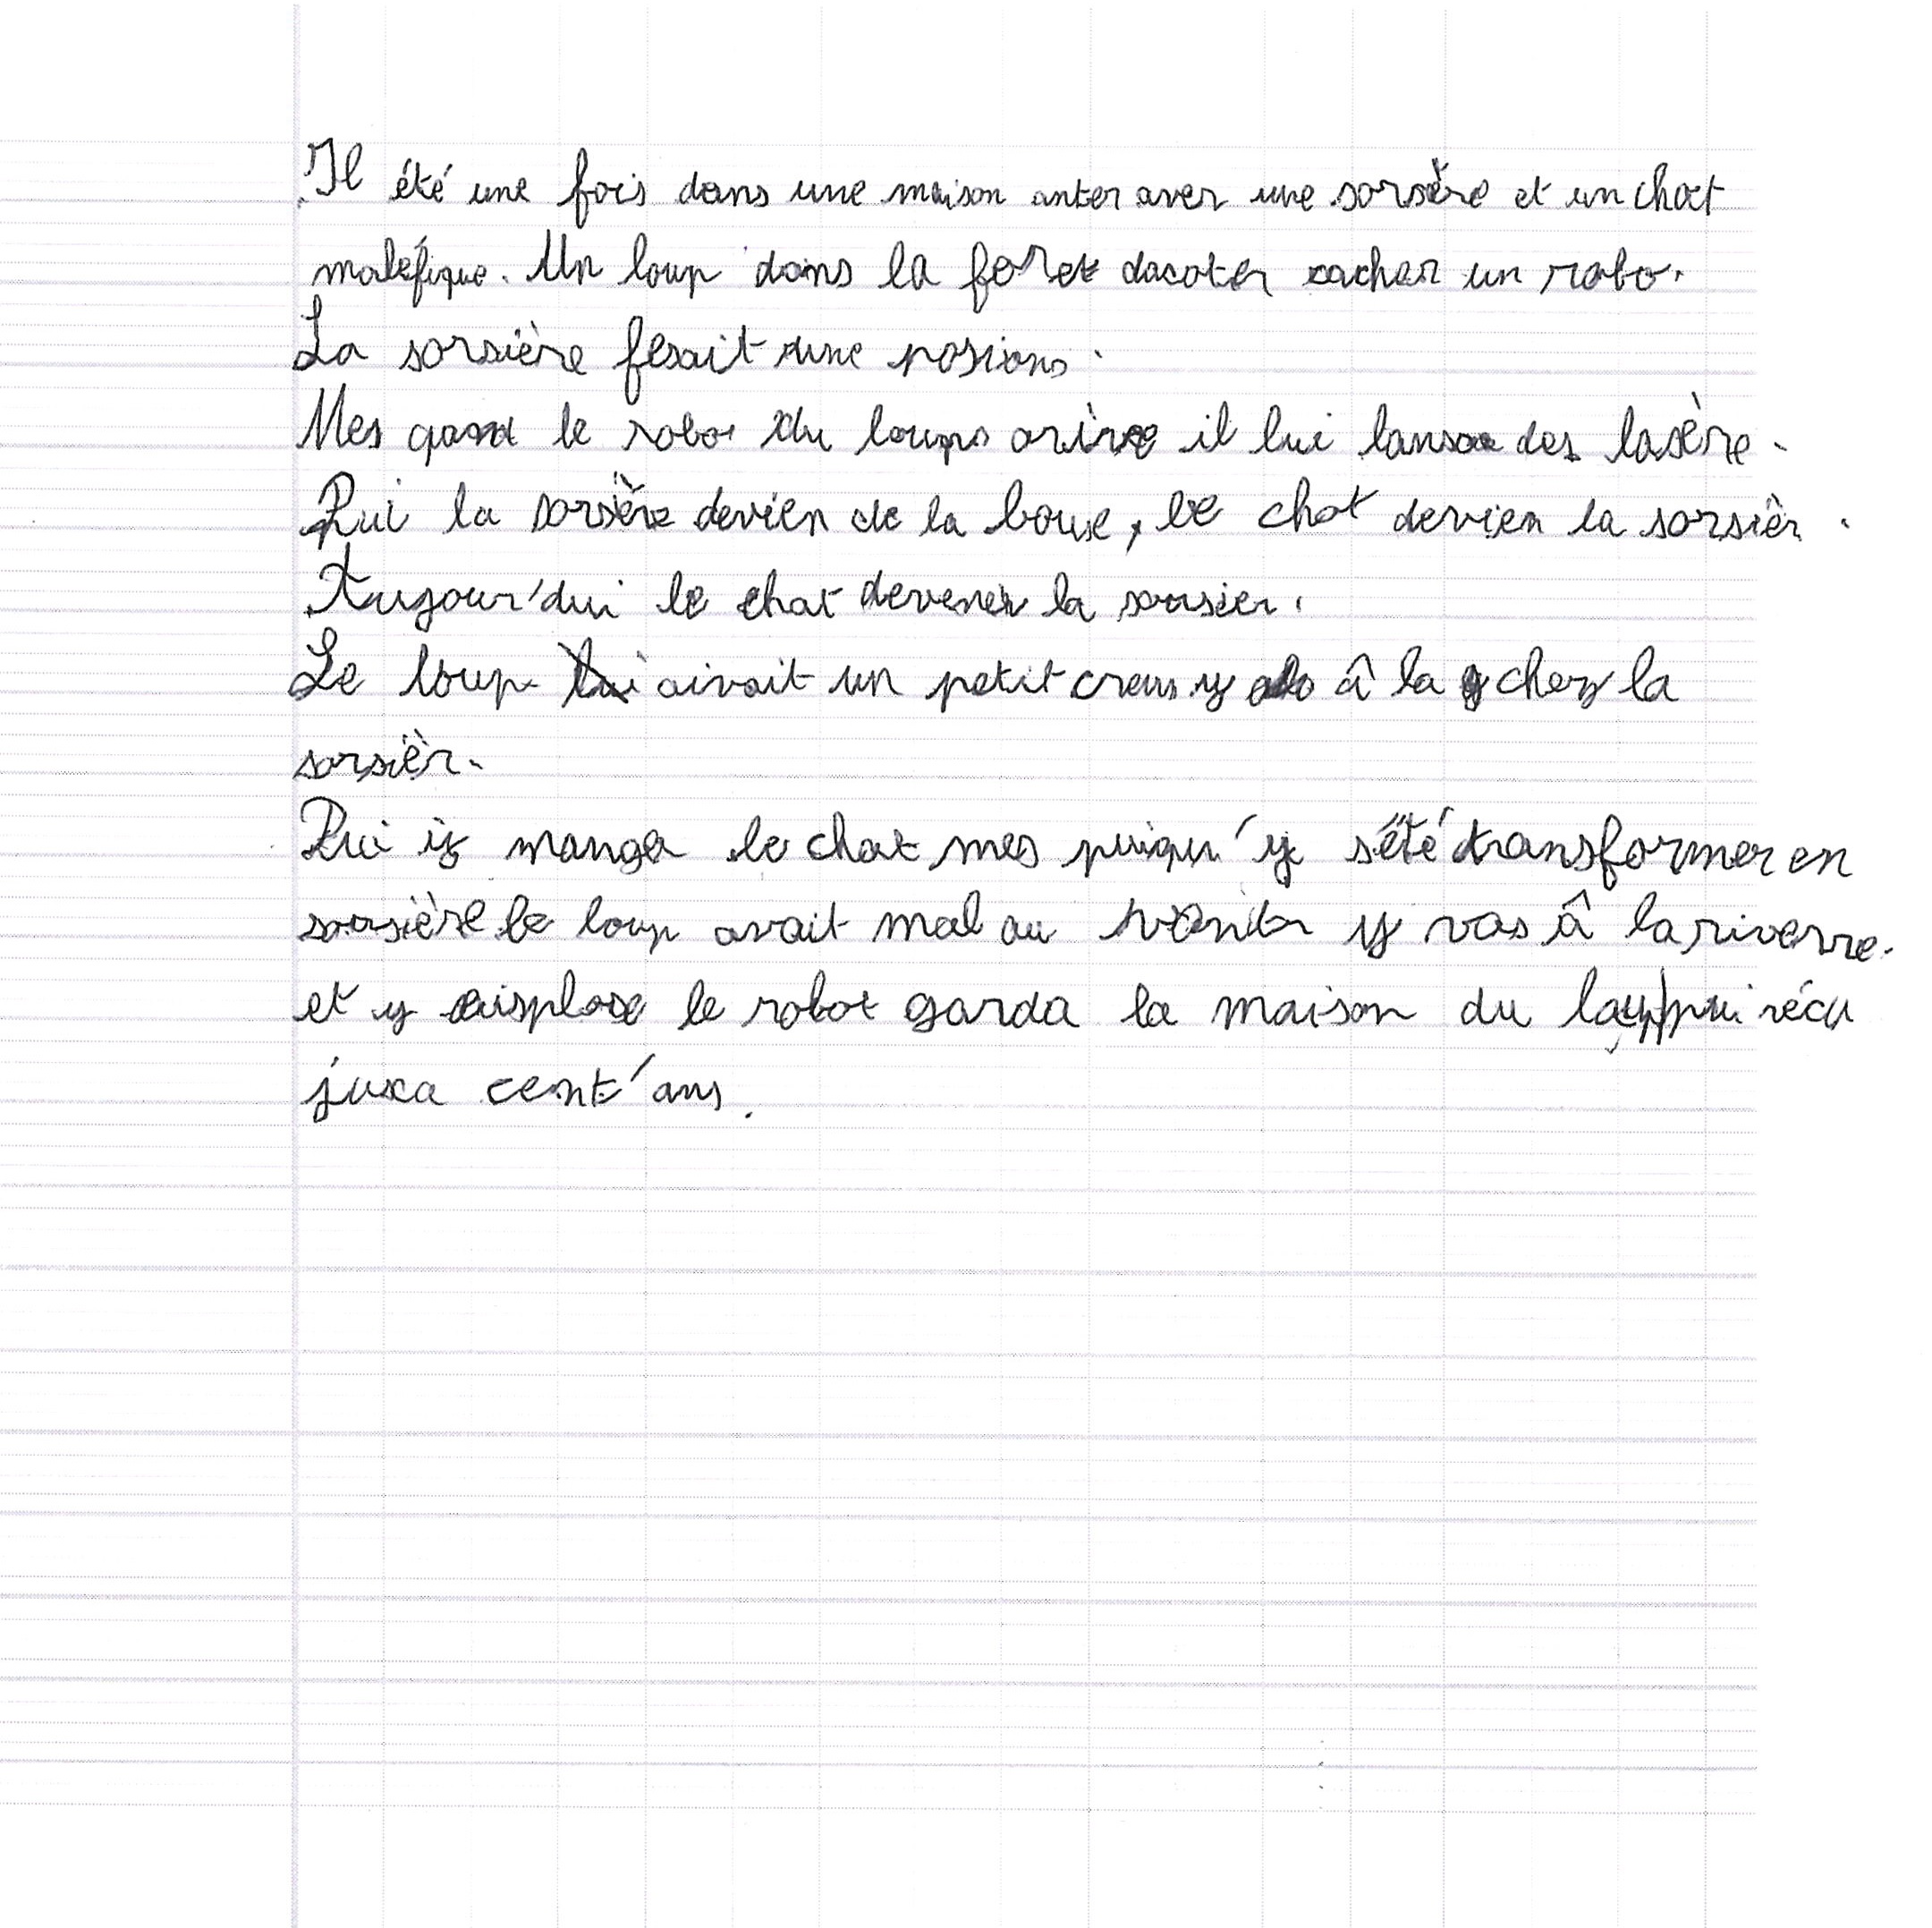 Il été une fois dans une maison anter aver une sorsère et un chat
maléfique. Un loup dans la foret dacoter cacher un robo.
La sorsière fesait une posions.
Mes qand le robo du loups arire il lui lansa des lasère.
Pui la sorsière devien de la boue, le chat devien la sorsièr.
Aujour'dui le chat devener la sorsier.
Le loup avait un petit creus y à la chez la
sorsièr.
Pui iy manga le chat mes puiqu'y s'été transformer en
sorsière le loup avait mal au ventr y vas â la riverre.
et y eisplose le robot garda la maison du loup pui récu
juxa cent'ans.